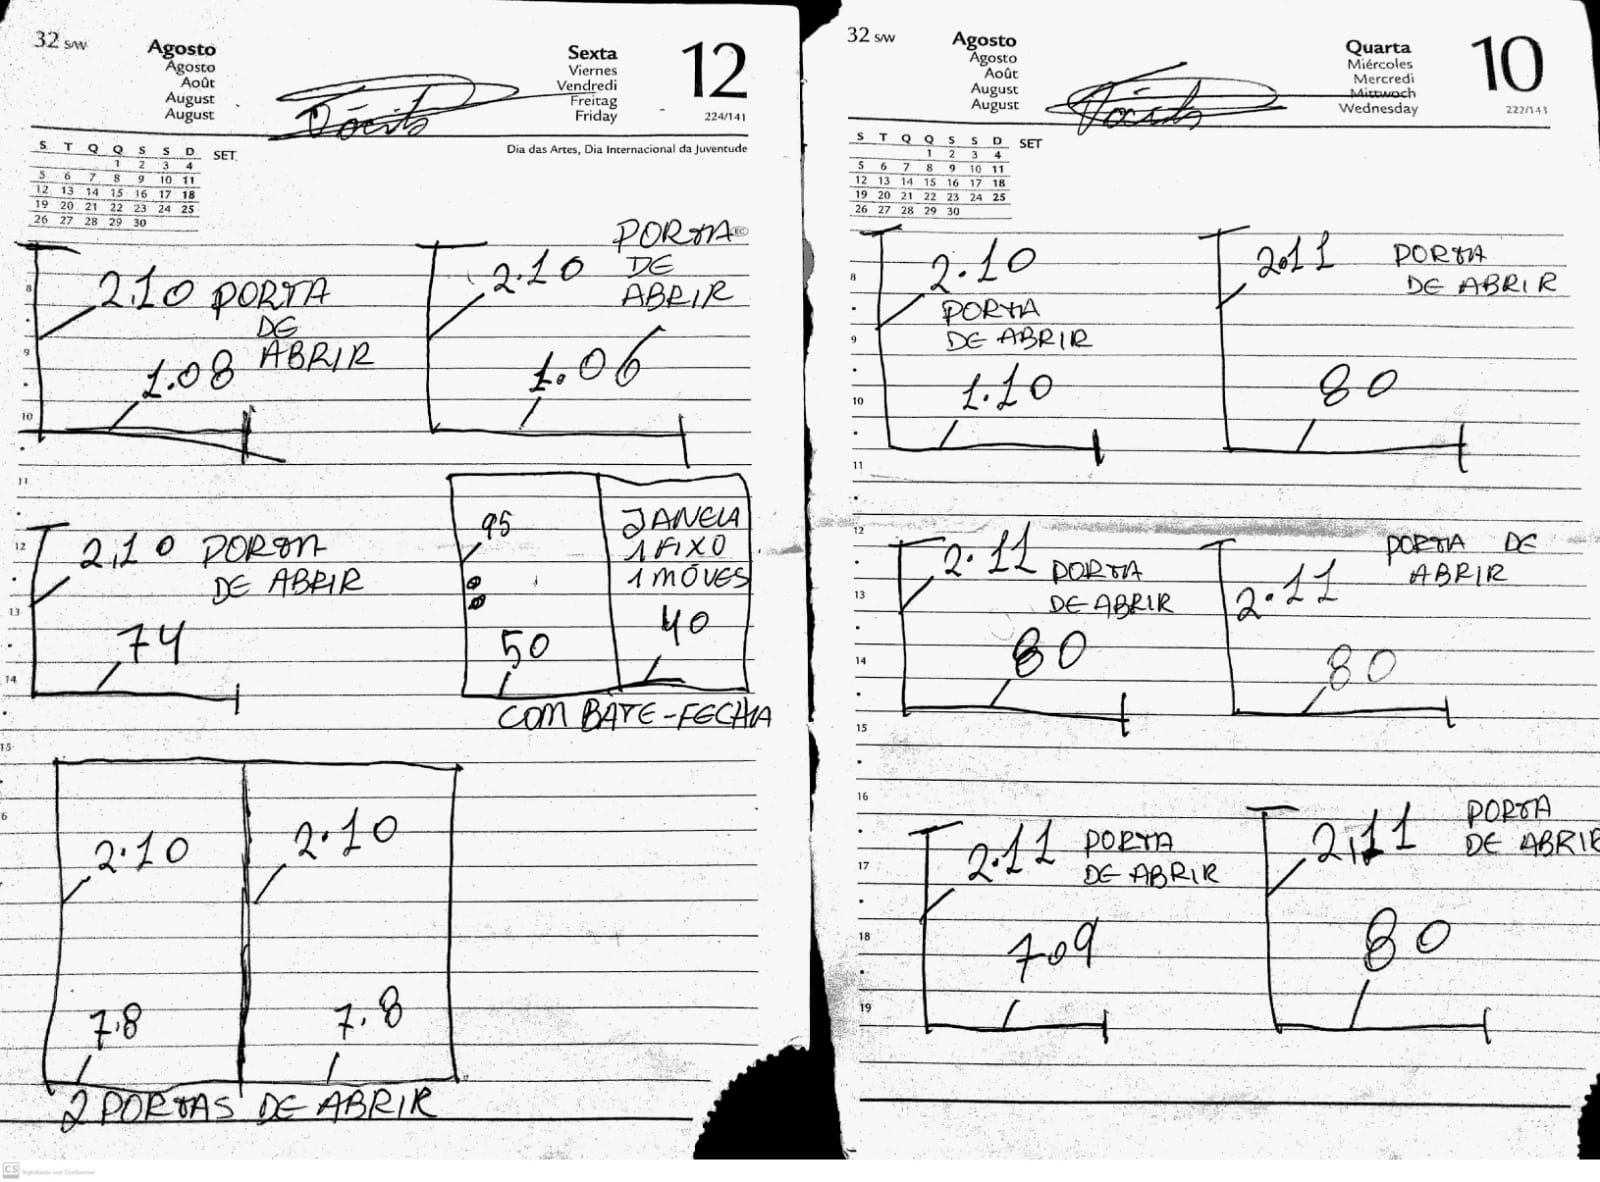 32 S/W
Agosto
Agosto
Août
August
August
Sexta
Viernes
Vendredi
Freitag
Friday
12
224/141
Dia das Artes, Dia Internacional da Juventude
S T Q Q S S D SET
1 2 3 4
5 6 7 8 9 10 11
12 13 14 15 16 17 18
19 20 21 22 23 24 25
26 27 28 29 30
2,10 PORTA
DE
ABRIR
1.08
2.10
PORTA
DE
ABRIR
1.06
8
9
10
11
12
13
14
15
6
2,10 PORTA
DE ABRIR
74
95
50
JANELA
1 FIXO
1 MÓVES
40
COM BATE-FECHA
2.10
2.10
7.8
7.8
2 PORTAS DE ABRIR
CS Digitalizado com CamScanner
32 S/W
Agosto
Agosto
Août
August
August
Quarta
Miércoles
Mercredi
Mittwoch
Wednesday
10
222/143
S T Q Q S S D SET
1 2 3 4
5 6 7 8 9 10 11
12 13 14 15 16 17 18
19 20 21 22 23 24 25
26 27 28 29 30
8
9
10
11
12
13
14
15
16
17
18
19
2.10
PORTA
DE ABRIR
1.10
2.11 PORTA
DE ABRIR
80
2.11 PORTA
DE ABRIR
80
PORTA DE
ABRIR
2.11
80
2.11 PORTA
DE ABRIR
7.09
2,11 PORTA
DE ABRIR
80